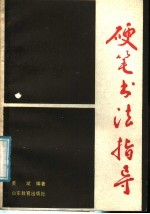 硬笔书法指导
编著
山东教育出版社